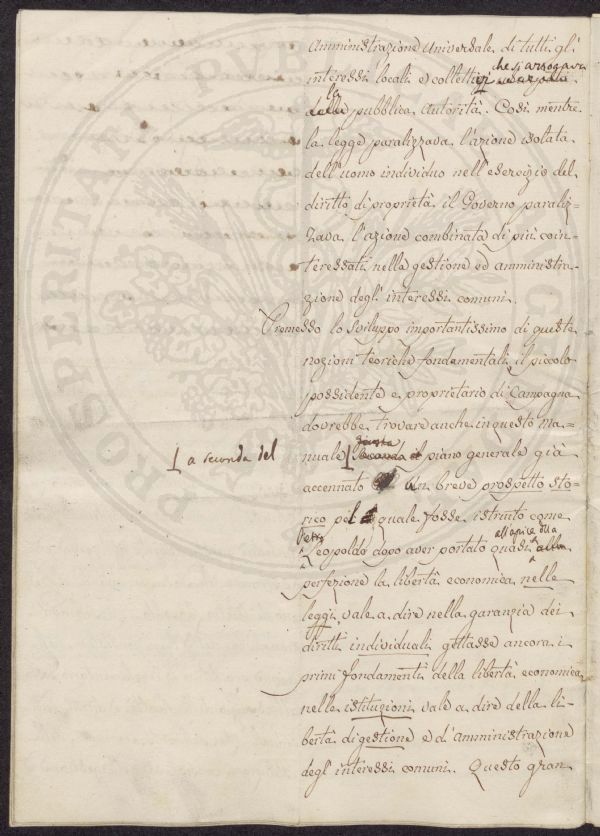 amministrazione universale di tutti gl'
che si arrogava
interessi locali e collettivi
la
pubblica autorità. Così mentre
la legge paralizzava l'azione isolata
dell'uomo individuo nell'esercizio del
diritto di proprietà il Governo paraliz=
zava l'azione combinata di più coin=
teressati nella gestione ed amministra=
zione degl'interessi comuni.
Premesso lo sviluppo importantissimo di queste
nozioni teoriche fondamentali il piccolo
possidente e proprietario di Campagna
dovrebbe trovare anche in questo Ma=
giusta
nuale secondo il piano generale già
a seconda del
accennato un breve prospetto sto=
rico pel quale fosse istruito come
Pietro all'apice della
Leopoldo dopo aver portato quasi alla
perfezione la libertà economica nelle
leggi vale a dire nella garanzia dei
diritti individuali gettasse ancora i
primi fondamenti della libertà economica
nelle istituzioni vale a dire della li=
bertà di gestione e d'amministrazione
degl'interessi comuni. Questo gran
PROSPERITATI PUBLICAE AUGENDAE